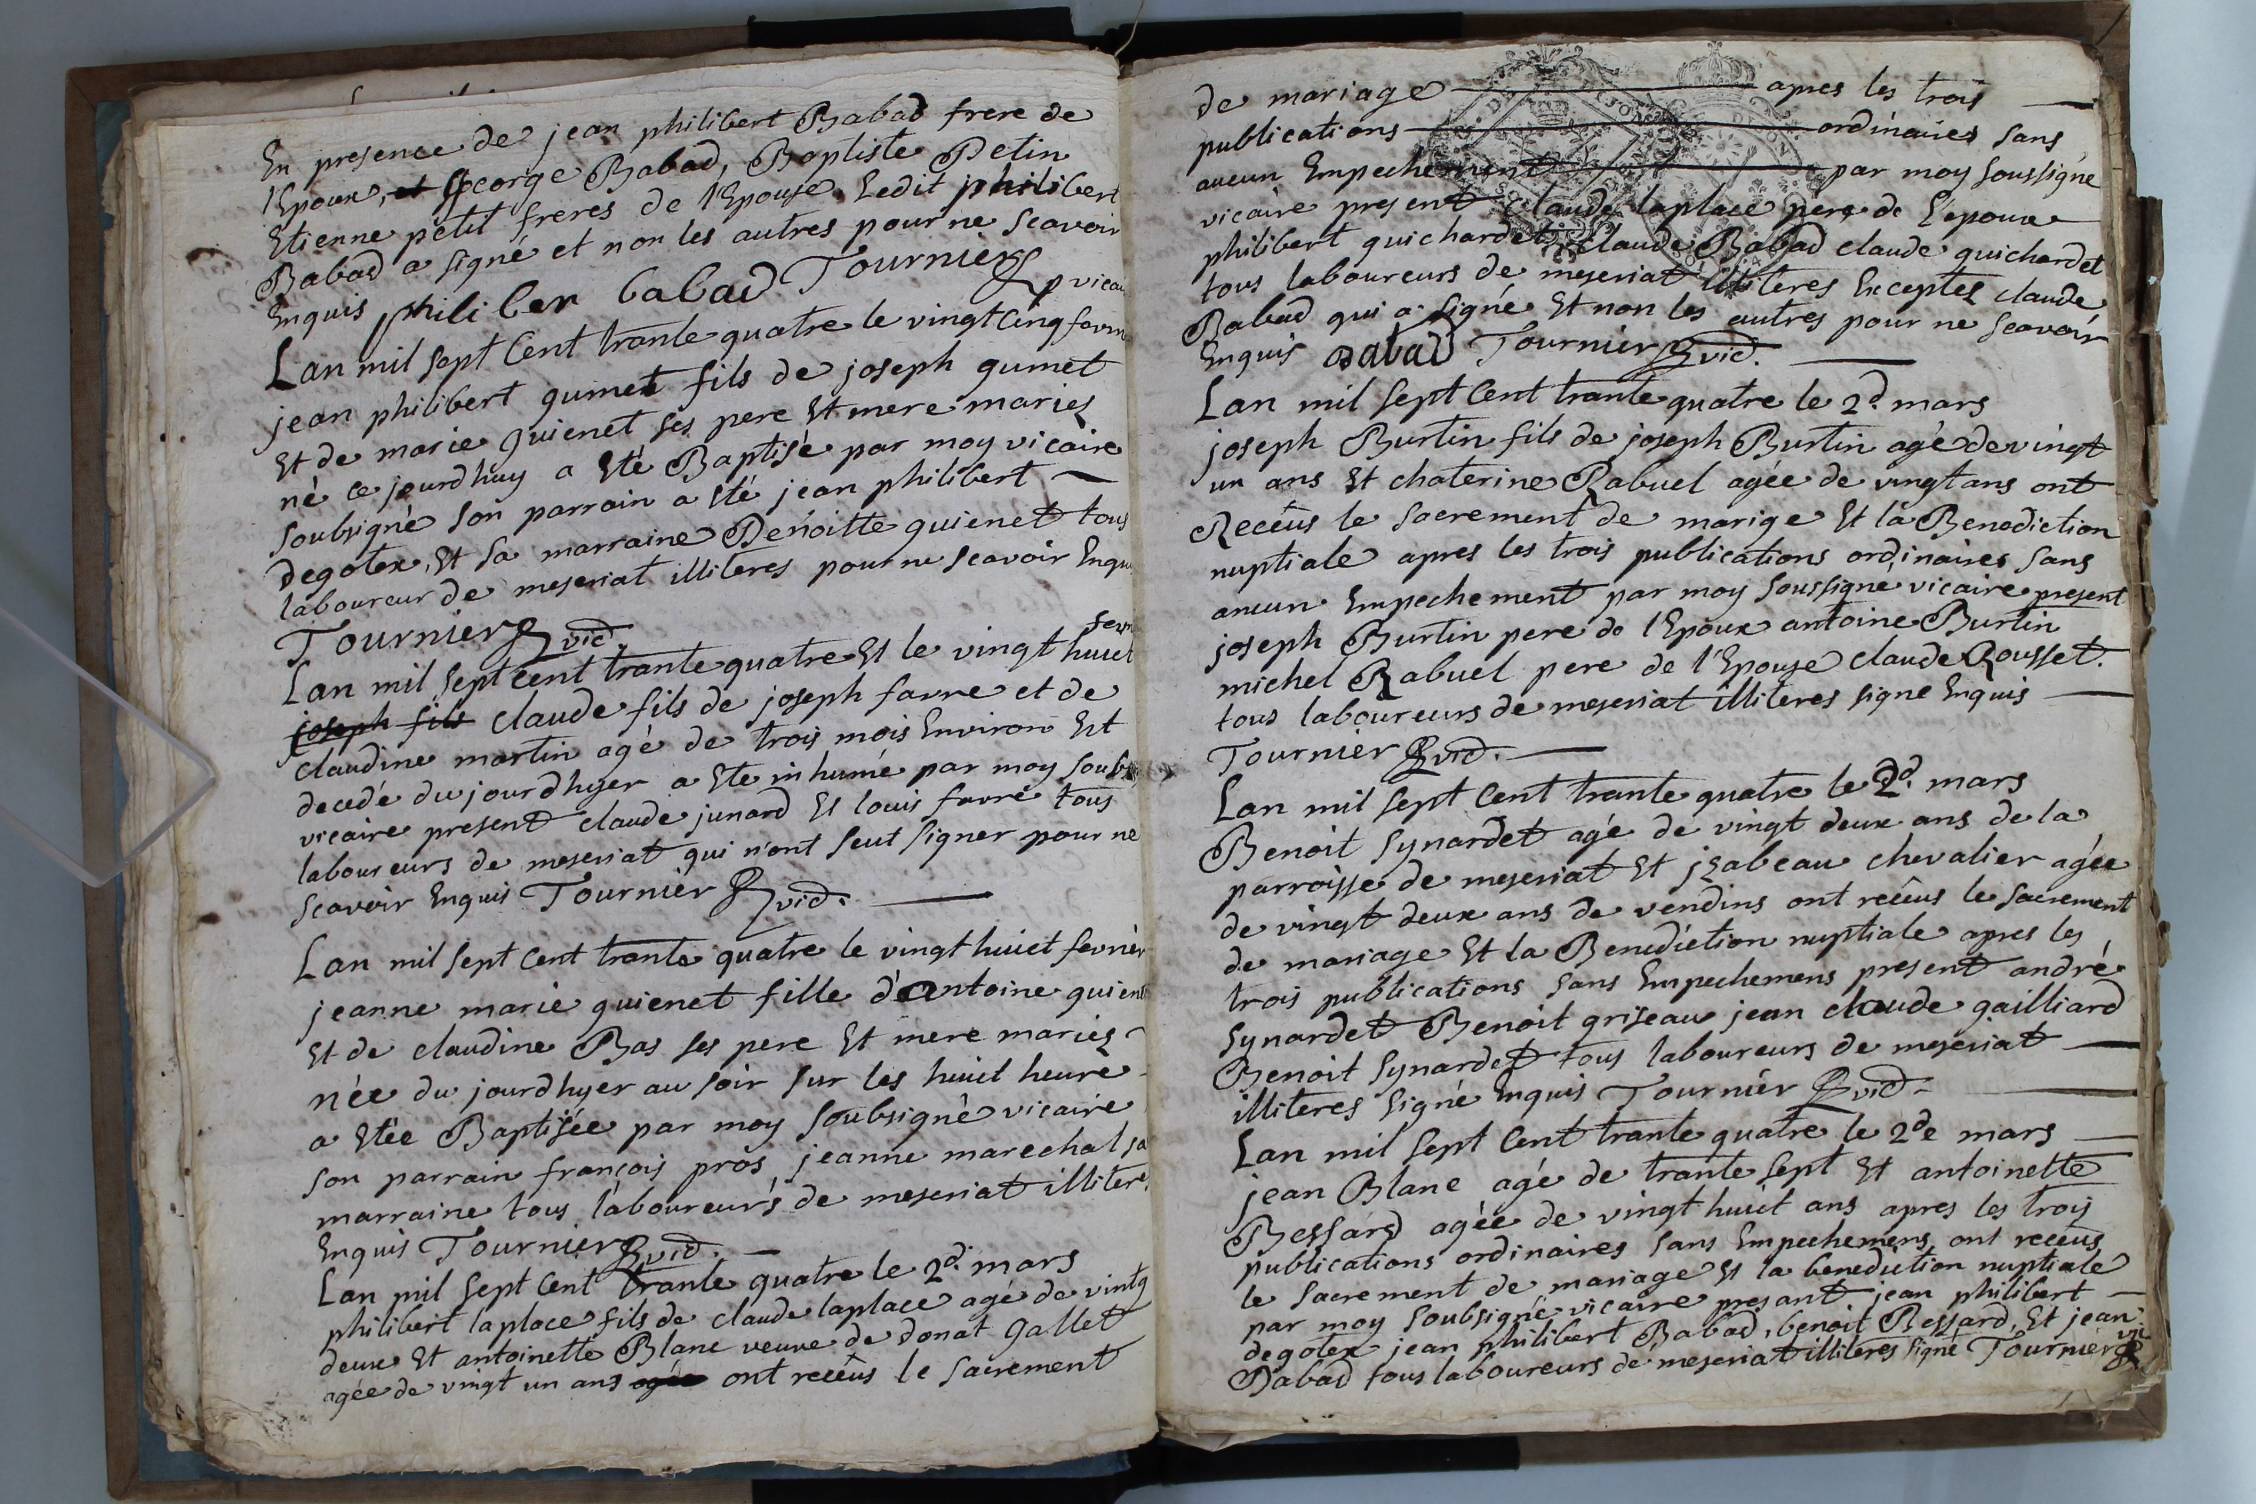 En presence de jean philibert Babad frere de
l'Epoux, et George Babad, Baptiste Petin
Etienne petit freres de l'Epouse. Ledit philibert
Babad a signé et non les autres pour ne scavoir
Enquis philiber babad Tournier vicai
Lan mil sept Cent trante quatre le vingt cinq fevrie
jean philibert gumet fils de joseph gumet
Et de marie guienet ses pere Et mere mariez
né ce jourdhuy a Eté Baptisé par moy vicaire
soubsigné son parrain a Eté jean philibert
degotex, Et sa marraine Benoitte guienet tous
laboureur de meseriat illiteres pour ne scavoir Enqui
Tournier vic.
Lan mil sept cent trante quatre Et le vingt huict fevri
joseph fils claude fils de joseph favre et de
claudine martin agé de trois mois Environ Est
decedé du jourdhyer a Ete inhumé par moy soubs
vicaire present claude junard Et louis favre tous
laboureurs de meseriat qui n'ont seut signer pour ne
scavoir Enquis Tournier vic.
Lan mil sept Cent trante quatre le vingt huict fevrier
jeanne marie guienet fille d'Antoine guienet
Et de claudine Bas ses pere Et mere mariez
née du jourdhyer au soir sur les huict heure
a Etée Baptisée par moy soubsigné vicaire
son parrain françois pros jeanne marechal sa
marraine tous laboureurs de meseriat illiteres
Enquis Tournier vic.
Lan mil sept cent trante quatre le 2d. mars
philibert laplace fils de claude laplace agé de vintg
deux Et antoinette Blanc veuve de donat Gallet
agée de vingt un ans agée ont recêus le sacrement
de mariage apres les trois
publications ordinaires sans
aucun Empechement par moy soussigné
vicaire present Claude laplace pere de l'epoux
philibert guichardet, Claude Babad claude guichardet
tous laboureurs de meseriat illiteres Exceptez claude
Babad qui a signé Et non les autres pour ne scavoir
Enquis Babad Tournier vic.
Lan mil sept Cent trante quatre le 2d. mars
joseph Burtin fils de joseph Burtin agé de vingt
un ans Et chaterine Rabuel agée de vingt ans ont
Recêus le sacrement de marige Et la Benediction
nuptiale apres les trois publications ordinaires sans
aucun Empechement par moy soussigné vicaire present
joseph Burtin pere de l'Epoux antoine Burtin
michel Rabuel pere de l'Epouse claude Rousset.
tous laboureurs de meseriat illiteres signe Enquis
Tournier vic.
Lan mil sept Cent trante quatre le 2d. mars
Benoit Synardet agé de vingt deux ans de la
parroisse de meseriat Et jzabeau chevalier agée
de vingt deux ans de vendins ont recêus le sacrement
de mariage Et la Benediction nuptiale apres les
trois publications sans Empechemens present andré
Synardet Benoit griseau jean claude gailliard
Benoit Synardet tous laboureurs de meseriat
illiteres signé Enquis Tournier vic.
Lan mil sept Cent trante quatre le 2de mars
jean Blanc agé de trante sept Et antoinette
Bessard agée de vingt huict ans apres les trois
publications ordinaires sans Empechemens ont recêus
le sacrement de mariage Et la benediction nuptiale
par moy soubsigné vicaire presant jean philibert
degotex jean philibert Babad, benoit Bessard, Et jean
Babad tous laboureurs de meseriat illiteres signé Tournier vic